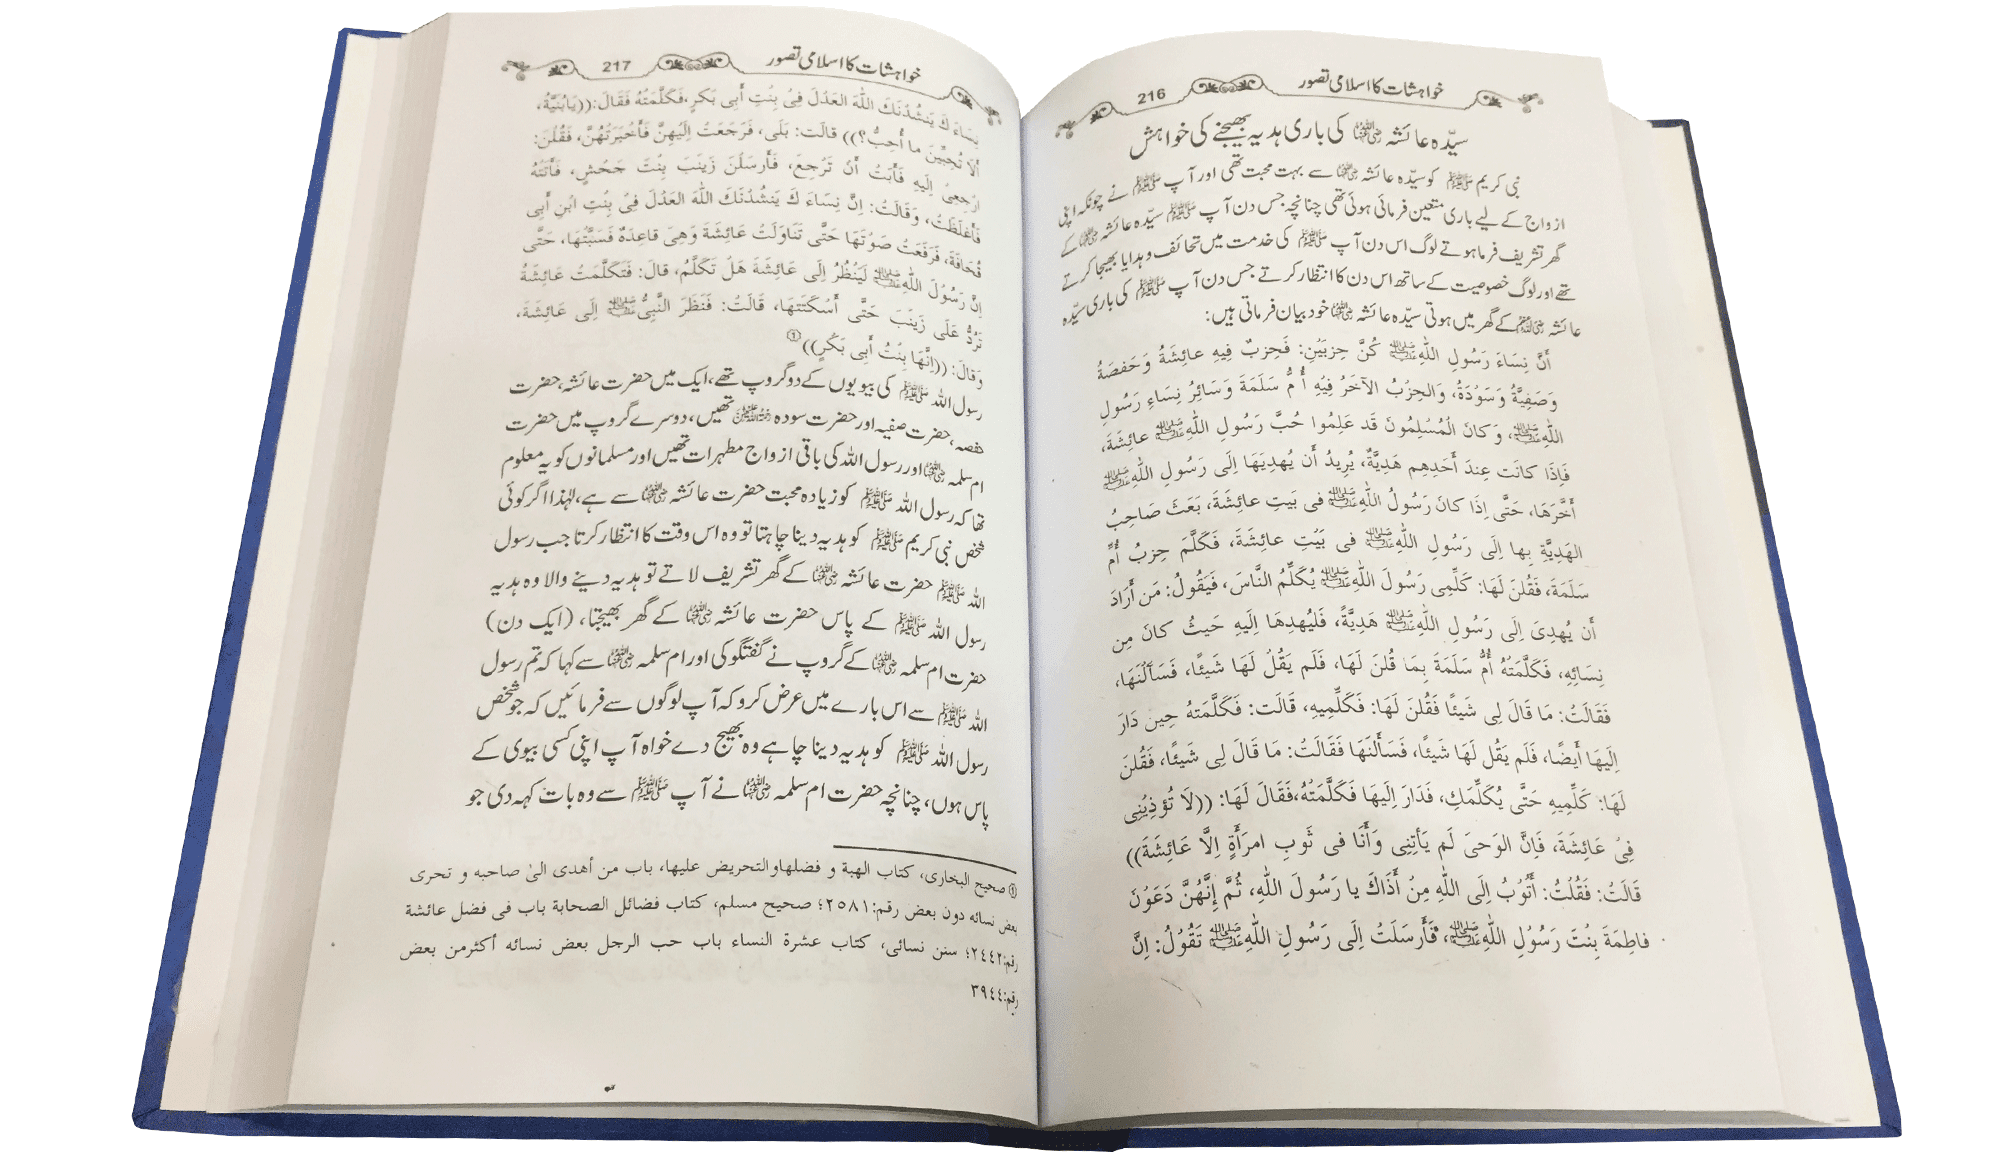 خواہشات کا اسلامی تصور
216
سیّدہ عائشہ رضی اللہ عنہا کی باری ہدیہ بھیجنے کی خواہش
نبی کریم ﷺ کو سیّدہ عائشہ رضی اللہ عنہا سے بہت محبت تھی اور آپ ﷺ نے چونکہ اپنی
ازواج کے لیے باری متعین فرمائی ہوئی تھی چنانچہ جس دن آپ ﷺ سیّدہ عائشہ رضی اللہ عنہا کے
گھر تشریف فرما ہوتے لوگ اس دن آپ ﷺ کی خدمت میں تحائف و ہدایا بھیجا کرتے
تھے اور لوگ خصوصیت کے ساتھ اس دن کا انتظار کرتے جس دن آپ ﷺ کی باری سیّدہ
عائشہ رضی اللہ عنہا کے گھر میں ہوتی سیّدہ عائشہ رضی اللہ عنہا خود بیان فرماتی ہیں:
أَنَّ نِسَاءَ رَسُولِ اللّٰهِ ﷺ كُنَّ حِزبَيْنِ: فَحِزبٌ فِيهِ عائِشَةُ وَحَفصَةُ
وَصَفِيَّةُ وَسَوْدَةُ، وَالحِزْبُ الآخَرُ فِيْهِ أُمُّ سَلَمَةَ وَسَائِرُ نِسَاءِ رَسُولِ
اللّٰهِ ﷺ، وَكانَ الْمُسْلِمُونَ قَد عَلِمُوا حُبَّ رَسُولِ اللّٰهِ ﷺ عائِشَةَ،
فَاِذَا كانَت عِندَ أَحَدِهِم هَدِيَّةٌ، يُرِيدُ أَن يُهدِيَهَا اِلَى رَسُولِ اللّٰهِ ﷺ
أَخَّرَهَا، حَتَّى اِذَا كانَ رَسُولُ اللّٰهِ ﷺ فى بَيتِ عائِشَةَ، بَعَثَ صَاحِبُ
الهَدِيَّةِ بِها اِلَى رَسُولِ اللّٰهِ ﷺ فى بَيْتِ عائِشَةَ، فَكَلَّمَ حِزبُ أُمِّ
سَلَمَةَ، فَقُلنَ لَهَا: كَلِّمِى رَسُولَ اللّٰهِ ﷺ يُكَلِّمُ النَّاسَ، فَيَقُولُ: مَن أَرَادَ
أَن يُهدِىَ اِلَى رَسُولِ اللّٰهِ ﷺ هَدِيَّةً، فَليُهدِهَا اِلَيهِ حَيثُ كانَ مِن
نِسَائِهِ، فَكَلَّمَتْهُ أُمُّ سَلَمَةَ بِمَا قُلنَ لَهَا، فَلَم يَقُلْ لَهَا شَيئًا، فَسَأَلْنَهَا،
فَقَالَتْ: مَا قَالَ لِى شَيئًا فَقُلنَ لَهَا: فَكَلِّمِيهِ، قَالَت: فَكَلَّمَتهُ حِين دَارَ
اِلَيهَا أَيضًا، فَلَم يَقُل لَهَا شَيئًا، فَسَأَلنَهَا فَقَالَتْ: مَا قَالَ لِى شَيئًا، فَقُلنَ
لَهَا: كَلِّمِيهِ حَتَّى يُكَلِّمَكِ، فَدَارَ اِلَيهَا فَكَلَّمَتْهُ،فَقَالَ لَهَا: ((لَا تُؤذِيْنِى
فِىْ عَائِشَةَ، فَاِنَّ الوَحىَ لَم يَأتِنِى وَأَنَا فى ثَوبِ امرَأَةٍ اِلَّا عَائِشَةَ))
قَالَتْ: فَقُلْتُ: أَتُوْبُ اِلَى اللّٰهِ مِنْ أَذَاكَ يا رَسُولَ اللّٰهِ، ثُمَّ إِنَّهُنَّ دَعَوْنَ
فاطِمَةَ بِنْتَ رَسُوْلِ اللّٰهِ ﷺ، فَأَرسَلَتْ اِلَى رَسُولِ اللّٰهِ ﷺ تَقُوْلُ: اِنَّ
خواہشات کا اسلامی تصور
217
نِسَاءَ كَ يَنْشُدْنَكَ اللّٰهَ العَدْلَ فِىْ بِنْتِ أَبِى بَكرٍ،فَكَلَّمَتْهُ فَقَالَ:((يَابُنَيَّةُ،
أَلَا تُحِبِّيْنَ مَا أُحِبُّ؟)) قالَت: بَلَى، فَرَجَعَتْ اِلَيْهِنَّ فَأَخْبَرَتْهُنَّ، فَقُلْنَ:
ارْجِعِىْ اِلَيهِ فَأَبَتْ أَنْ تَرْجِعَ، فَأَرسَلْنَ زَينَبَ بِنْتَ جَحَشٍ، فَأَتَتْهُ
فَأَغْلَظَتْ، وَقَالَتْ: اِنَّ نِسَاءَ كَ يَنشُدْنَكَ اللّٰهَ العَدْلَ فِىْ بِنْتِ ابْنِ أَبِى
قُحَافَةَ، فَرَفَعَتْ صَوْتَهَا حَتَّى تَنَاوَلَتْ عَائِشَةَ وَهِىَ قاعِدَةٌ فَسَبَّتْهَا، حَتَّى
اِنَّ رَسُوْلَ اللّٰهِ ﷺ لَيَنْظُرُ اِلَى عَائِشَةَ هَلْ تَكَلَّمُ، قَالَ: فَتَكَلَّمَتْ عَائِشَةُ
تَرُدُّ عَلَى زَيْنَبَ حَتَّى أَسْكَتَتهَا، قَالَتْ: فَنَظَرَ النَّبِىُّ ﷺ اِلَى عَائِشَةَ،
وَقَالَ: ((اِنَّهَا بِنْتُ أَبِى بَكْرٍ))①
رسول اللہ ﷺ کی بیویوں کے دو گروپ تھے، ایک میں حضرت عائشہ، حضرت
حفصہ، حضرت صفیہ اور حضرت سودہ رضی اللہ عنہن تھیں، دوسرے گروپ میں حضرت
ام سلمہ رضی اللہ عنہا اور رسول اللہ کی باقی ازواج مطہرات تھیں اور مسلمانوں کو یہ معلوم
تھا کہ رسول اللہ ﷺ کو زیادہ محبت حضرت عائشہ رضی اللہ عنہا سے ہے، لہٰذا اگر کوئی
شخص نبی کریم ﷺ کو ہدیہ دینا چاہتا تو وہ اس وقت کا انتظار کرتا جب رسول
اللہ ﷺ حضرت عائشہ رضی اللہ عنہا کے گھر تشریف لاتے تو ہدیہ دینے والا وہ ہدیہ
رسول اللہ ﷺ کے پاس حضرت عائشہ رضی اللہ عنہا کے گھر بھیجتا، (ایک دن)
حضرت ام سلمہ رضی اللہ عنہا کے گروپ نے گفتگو کی اور ام سلمہ رضی اللہ عنہا سے کہا کہ تم رسول
اللہ ﷺ سے اس بارے میں عرض کرو کہ آپ لوگوں سے فرمائیں کہ جو شخص
رسول اللہ ﷺ کو ہدیہ دینا چاہے وہ بھیج دے خواہ آپ اپنی کسی بیوی کے
پاس ہوں، چنانچہ حضرت ام سلمہ رضی اللہ عنہا نے آپ ﷺ سے وہ بات کہہ دی جو
① صحيح البخارى، كتاب الهبة و فضلهاوالتحريض عليها، باب من أهدى الىٰ صاحبه و تحرى
بعض نسائه دون بعض رقم:٢٥٨١؛ صحيح مسلم، كتاب فضائل الصحابة باب فى فضل عائشة
رقم:٢٤٤٢؛ سنن نسائى، كتاب عشرة النساء باب حب الرجل بعض نسائه أكثرمن بعض
رقم:٣٩٤٤